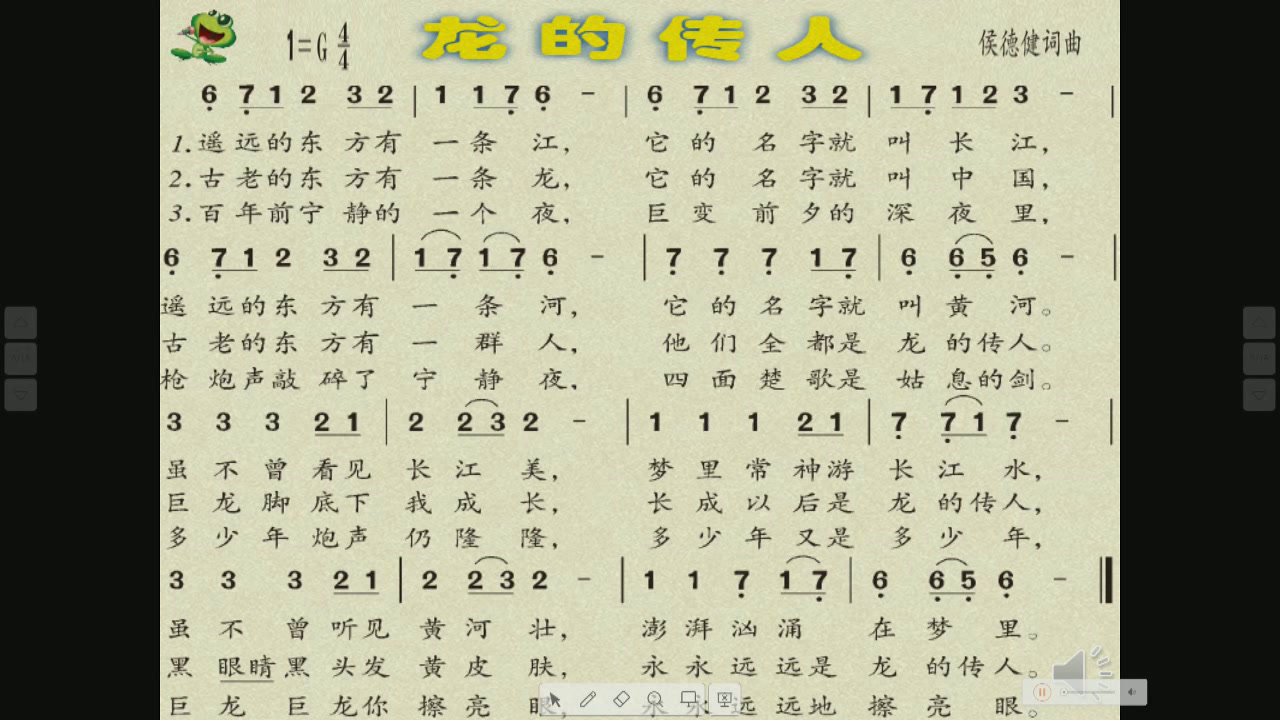 龙的传人
1=G 4/4
侯德健词曲
6 7 1 2 3 2 | 1 1 7 6 - | 6 7 1 2 3 2 | 1 7 1 2 3 - |
1.遥远的东方有一条江，它的名字就叫长江，
2.古老的东方有一条龙，它的名字就叫中国，
3.百年前宁静的一个夜，巨变前夕的深夜里，
6 7 1 2 3 2 | 1 7 1 7 6 - | 7 7 7 1 7 | 6 6 5 6 - |
遥远的东方有一条河，它的名字就叫黄河。
古老的东方有一群人，他们全都是龙的传人。
枪炮声敲碎了宁静夜，四面楚歌是姑息的剑。
3 3 3 2 1 | 2 2 3 2 - | 1 1 1 2 1 | 7 7 1 7 - |
虽不曾看见长江美，梦里常神游长江水，
巨龙脚底下我成长，长成以后是龙的传人，
多少年炮声仍隆隆，多少年又是多少年，
3 3 3 2 1 | 2 2 3 2 - | 1 1 7 1 7 | 6 6 5 6 - ‖
虽不曾听见黄河壮，澎湃汹涌在梦里。
黑眼睛黑头发黄皮肤，永永远远是龙的传人。
巨龙巨龙你擦亮眼，永永远远地擦亮眼。